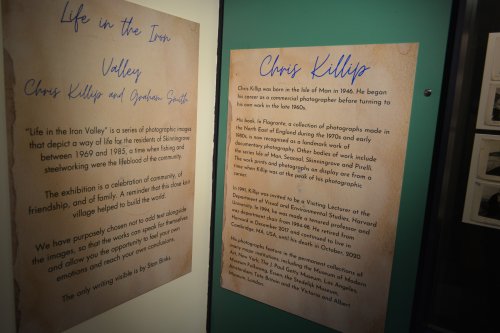 Life in the Iron
Valley
Chris Killip and Graham Smith
"Life in the Iron Valley" is a series of photographic images
that depict a way of life for the residents of Skinningrove
between 1969 and 1985, a time when fishing and
steelworking were the lifeblood of the community.
The exhibition is a celebration of community, of
friendship, and of family. A reminder that this close knit
village helped to build the world.
We have purposely chosen not to add text alongside
the images, so that the works can speak for themselves
and allow you the opportunity to feel your own
emotions and reach your own conclusions.
The only writing visible is by Stan Binks.
Chris Killip
Chris Killip was born in the Isle of Man in 1946. He began
his career as a commercial photographer before turning to
his own work in the late 1960s.
His book, In Flagrante, a collection of photographs made in
the North East of England during the 1970s and early
1980s, is now recognised as a landmark work of
documentary photography. Other bodies of work include
the series Isle of Man, Seacoal, Skinningrove and Pirelli.
The work prints and photographs on display are from a
time when Killip was at the peak of his photographic
career.
In 1991, Killip was invited to be a Visiting Lecturer at the
Department of Visual and Environmental Studies, Harvard
University. In 1994, he was made a tenured professor and
was department chair from 1994-98. He retired from
Harvard in December 2017 and continued to live in
Cambridge, MA, USA, until his death in October, 2020.
His photographs feature in the permanent collections of
many major institutions, including the Museum of Modern
Art, New York, The J. Paul Getty Museum, Los Angeles,
Museum Folkwang, Essen, the Stedelijk Museum,
Amsterdam, Tate Britain and the Victoria and Albert
Museum, London.